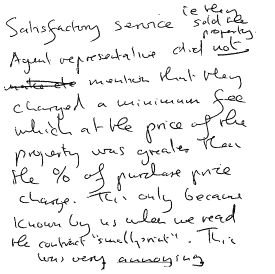 Satisfactory service ie they
sold the
property.
Agent representative did not
mention that they
charged a minimum fee
which at the price of the
property was greater than
the % of purchase price
charge. This only became
known by us when we read
the contract "small print". This
was very annoying